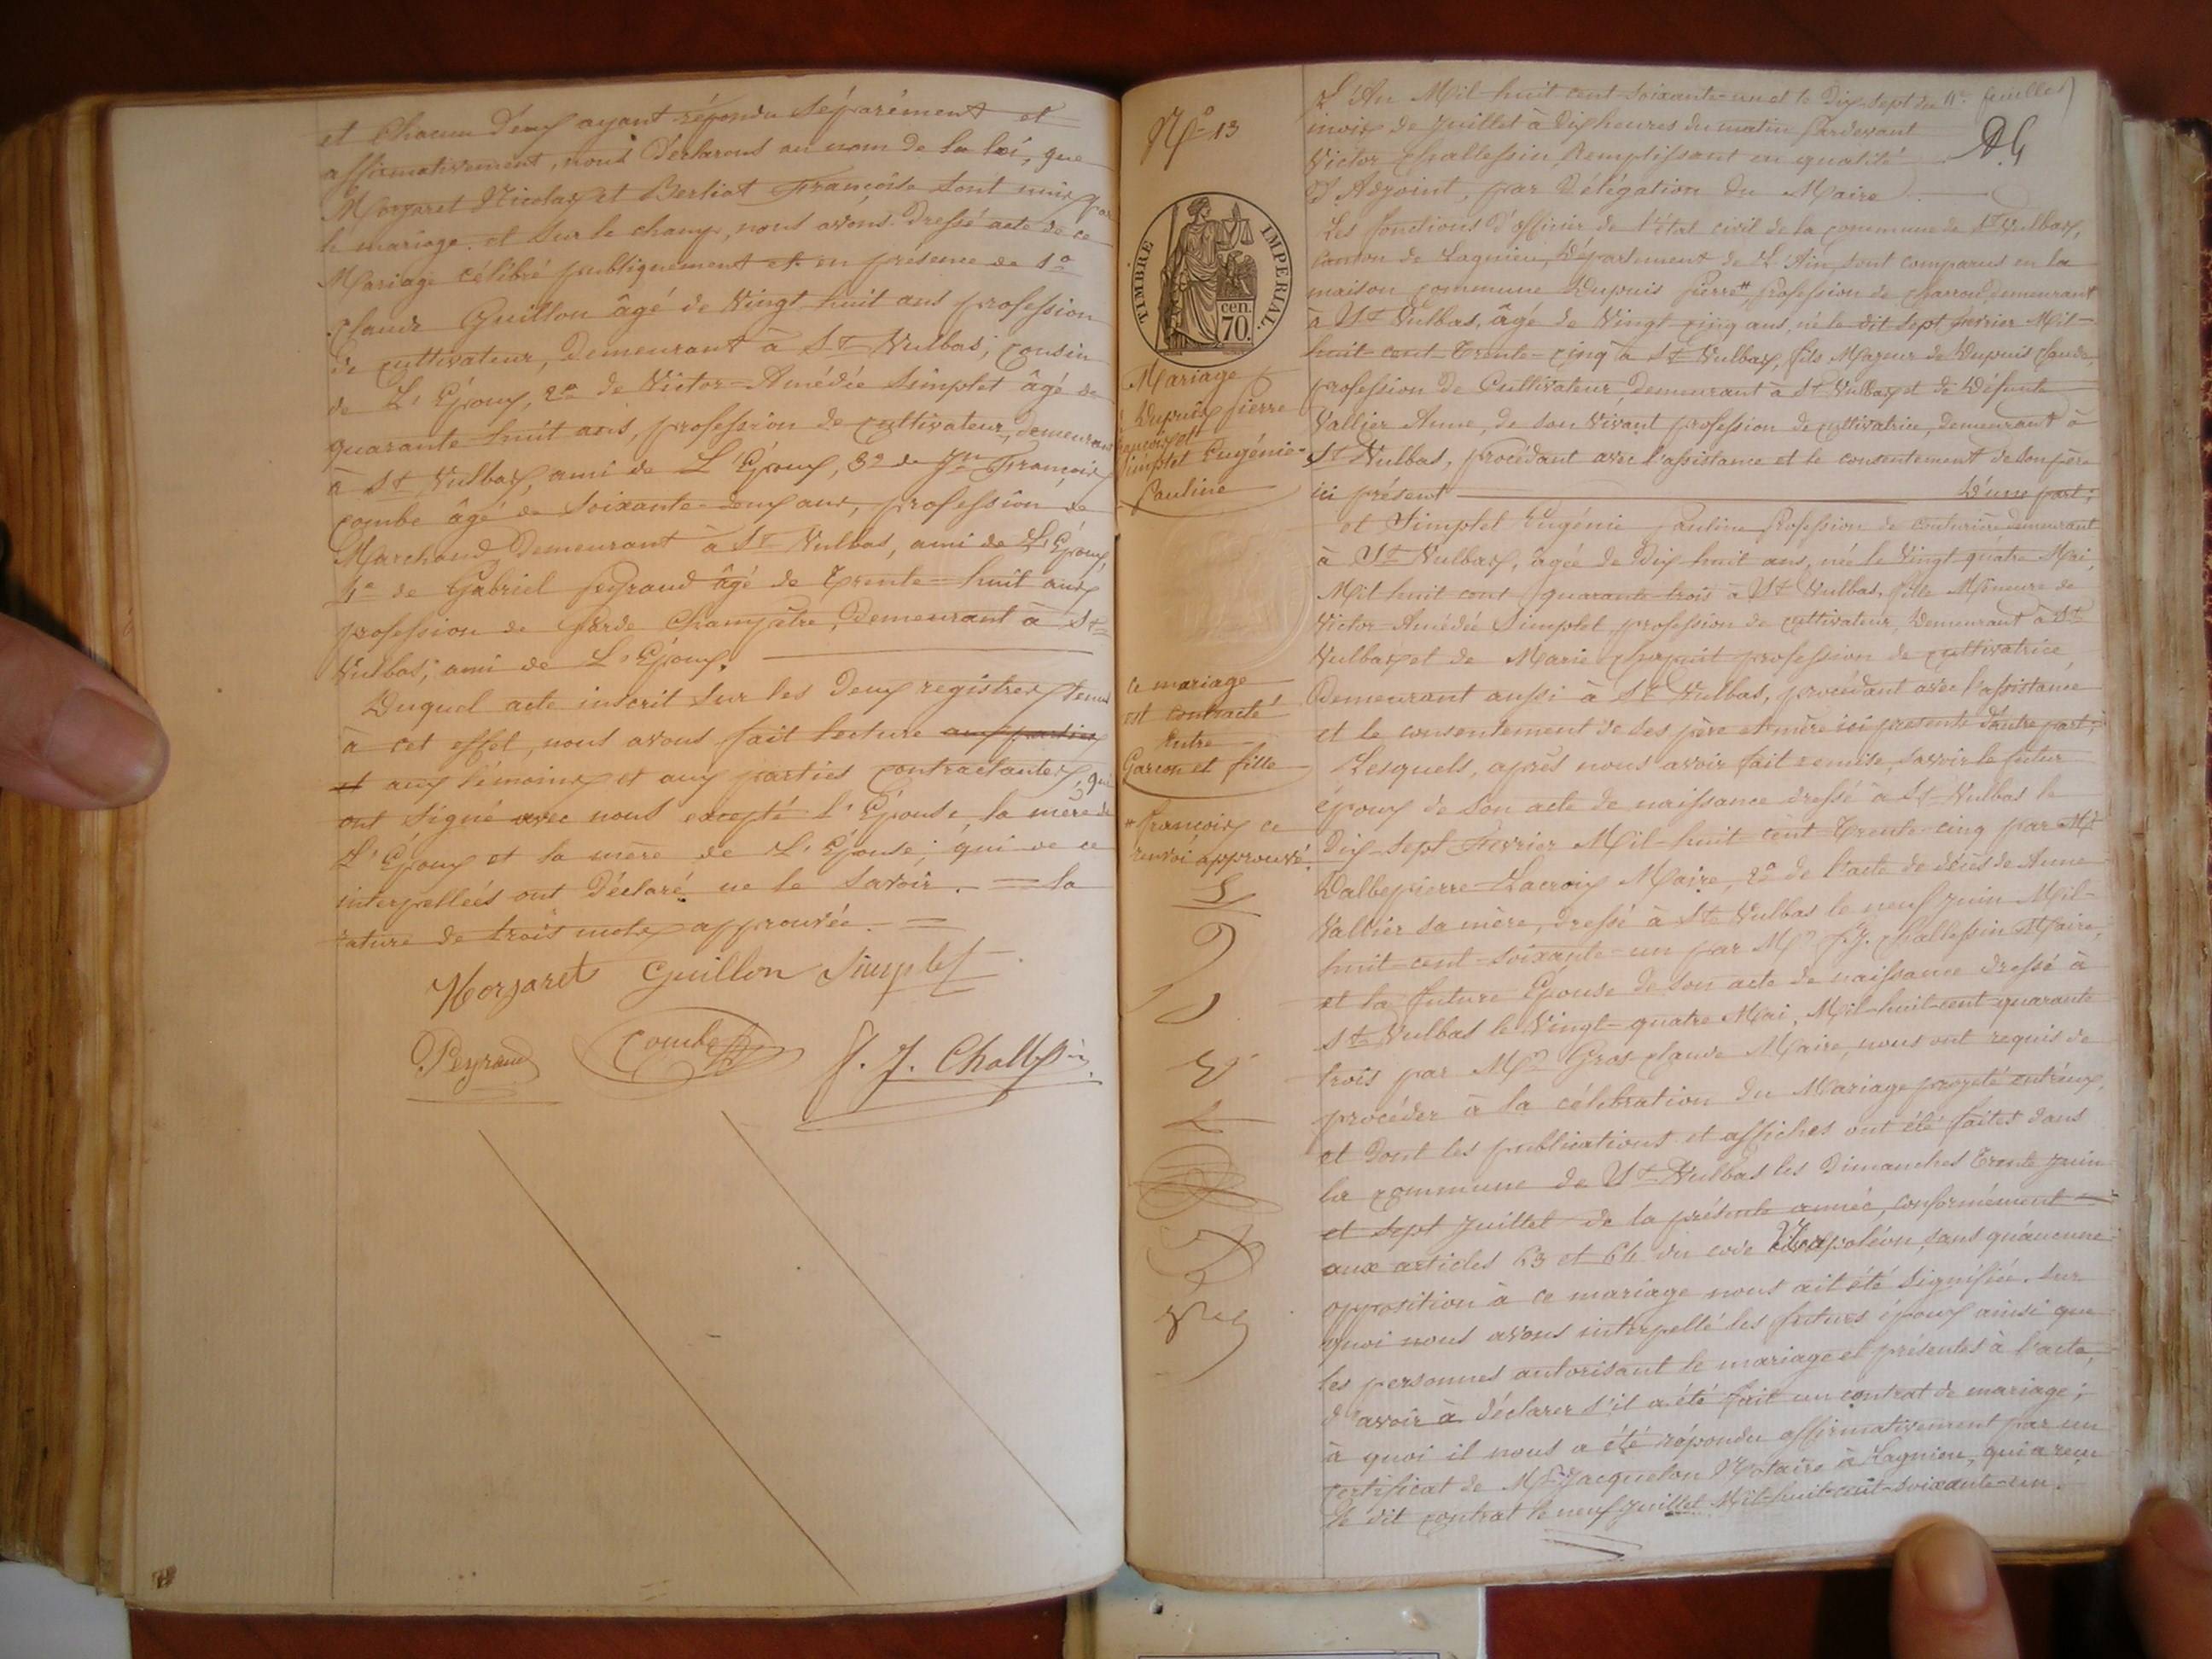 et Chacun d'eux ayant répondu séparément et
affirmativement, nous déclarons au nom de la loi, que
Morgaret Nicolas et Berliat Françoise sont unis par
le mariage. et sur le champ, nous avons dressé acte de ce
Mariage célébré publiquement et en présence de 1º
Claude Guillon âgé de Vingt huit ans profession
de cultivateur, demeurant à St Vulbas, cousin
de L'Époux, 2º de Victor-Amédée Simplet âgé de
quarante huit ans, profession de cultivateur, demeurant
à St Vulbas, ami de L'Époux, 3º de Jn François
Combe âgé de soixante deux ans, profession de
Marchand demeurant à St Vulbas, ami de L'Époux,
4º de Gabriel Peyraud âgé de Trente-huit ans
profession de Garde Champêtre, demeurant à St
Vulbas; ami de L'Époux.
Duquel acte inscrit sur les deux registres tenus
à cet effet, nous avons fait lecture aux parties
et aux témoins et aux parties contractantes, qui
ont signé avec nous excepté l'Épouse, la mère de
L'Époux et la mère de L'Épouse; qui de ce
interpellées ont déclaré ne le savoir. = la
rature de trois mots approuvée. =
Morgaret Guillon Simplet
Peyraud Combe J. J. Challessin
Nº 13
TIMBRE IMPERIAL.
cen. 70.
Mariage
Dupuis Pierre
françois et
Simplet Eugénie-
Pauline
Ce mariage
est contracté
Entre
Garcon et fille
* françois ce
renvoi approuvé
L'An Mil huit cent soixante-un et le Dix-sept du
mois de Juillet à Dix heures du matin Pardevant
Victor Challessin Remplissant en qualité
D'Adjoint, par Délégation du Maire
Les fonctions d'officier de l'état civil de la commune de St Vulbas,
canton de Lagnieu, Département de L'Ain, sont comparus en la
maison commune Dupuis Pierre*, profession de charron, demeurant
à St Vulbas, âgé de Vingt cinq ans, né le dit sept fevrier Mil-
huit-cent-Trente-cinq à St Vulbas, fils Majeur de Dupuis Claude,
profession de Cultivateur, demeurant à St Vulbas et de Défunte
Vallier Anne, de son vivant profession de cultivatrice, demeurant à
St Vulbas, procédant avec l'assistance et le consentement de son père
ici présent D'une part;
et Simplet Eugénie Pauline Profession de couturière demeurant
à St Vulbas, âgée de Dix huit ans, née le Vingt quatre Mai,
Mil huit cent quarante-trois à St Vulbas, fille Mineure de
Victor-Amédée Simplet profession de cultivateur, demeurant à St
Vulbas et de Marie profession de cultivatrice,
demeurant aussi à St Vulbas, procédant avec l'assistance
et le consentement de ses père et mère ici présents d'autre part;
Lesquels, après nous avoir fait remise, savoir le futur
époux de son acte de naissance dressé à St Vulbas le
Dix-sept Fevrier Mil-huit cent Trente-cinq par Mr
Dalbepierre-Lacroix Maire, 2º de l'acte de décès de Anne
Vallier sa mère, dressé à St Vulbas le neuf juin Mil-
huit-cent-soixante-un par Mr J.J. Challessin Maire,
et la future Épouse de son acte de naissance dressé à
St Vulbas le Vingt-quatre Mai, Mil-huit-cent-quarante
trois par Mr Gros Claude Maire, nous ont requis de
procéder à la célébration du Mariage projeté entr'eux,
et dont les publications et affiches ont été faites dans
la commune de St Vulbas les Dimanches Trente juin
et sept juillet de la présente année, conformément
aux articles 63 et 64 du code Napoléon, sans qu'aucune
opposition à ce mariage nous ait été signifiée. Sur
quoi nous avons interpellé les futurs époux ainsi que
les personnes autorisant le mariage et présentes à l'acte,
d'avoir à déclarer s'il a été fait un contrat de mariage;
à quoi il nous a été répondu affirmativement par un
certificat de Me Jacqueton Notaire à Lagnieu, qui a reçu
le dit contrat le neuf juillet Mil-huit-cent-soixante-un.